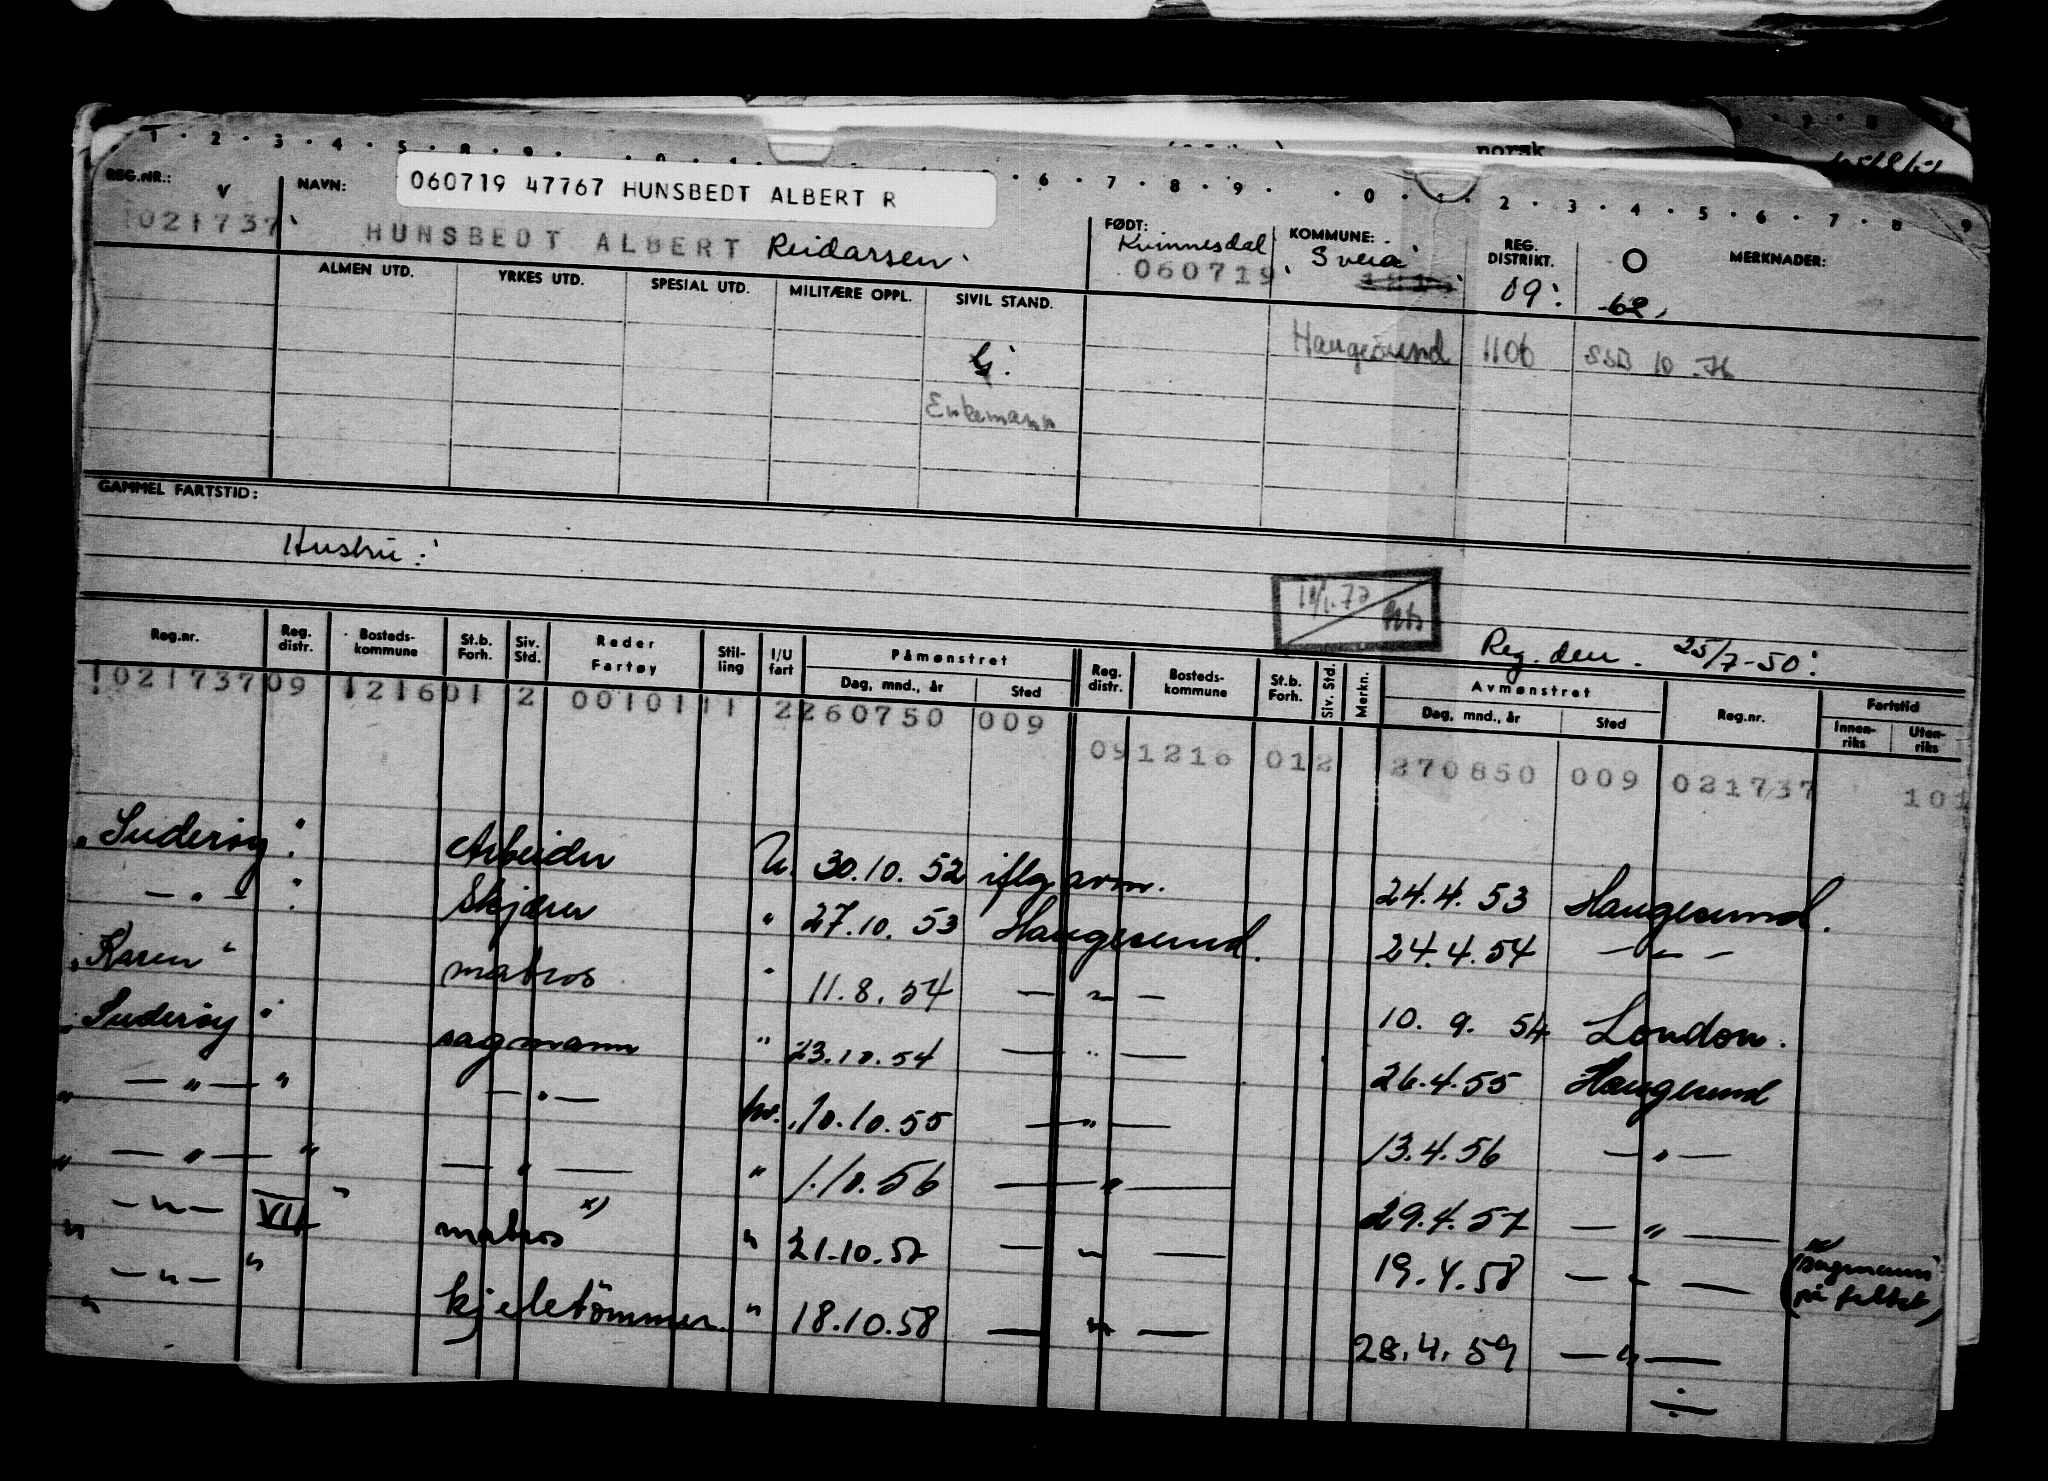 1 · 2 · 3 · 4 · 5 8 9 0 1 6 · 7 · 8 · 9 · · 0 · 1 · 2 · 3 · 4 · 5 · 6 · 7 · 8 9
norsk
REG.NR.: V NAVN: 060719 47767 HUNSBEDT ALBERT R
021737 HUNSBEDT ALBERT Reidarsen
FØDT: KOMMUNE: REG. DISTRIKT. O MERKNADER:
Kvinnesdal Sveia
060719 09 62
ALMEN UTD. YRKES UTD. SPESIAL UTD. MILITÆRE OPPL. SIVIL STAND.
G. Haugesund 1106 SSB 10.76
Enkemann
GAMMEL FARTSTID:
Hustru:
11/1.77
Reg. den. 25/7-50.
Reg.nr. Reg. distr. Bosteds- kommune St.b. Forh. Siv. Std. Reder Fartøy Stil- ling I/U fart Påmønstret Reg. distr. Bosteds- kommune St.b. Forh. Siv. Std. Merkn. Avmønstret Reg.nr. Fartstid
Dag, mnd., år Sted Dag, mnd., år Sted Innen- riks Uten- riks
021737 09 1216 01 2 00101 11 2 260750 009
09 1216 01 2 270850 009 021737 101
„Suderøy“ Arbeider U. 30.10.52 iflg avm. 24.4.53 Haugesund.
— „ — Skjærer " 27.10.53 Haugesund. 24.4.54 — " —
„Karen“ matros " 11.8.54 — " — 10.9.54 London.
„Suderøy“ sagmann " 23.10.54 — " — 26.4.55 Haugesund
„ — " — “ — " — hv. 10.10.55 — " — 13.4.56 — " —
„ — " — “ — " — " 1.10.56 — " — 29.4.57 — " —
„ — " — VII “ matros x) " 21.10.57 — " — 19.4.58 — " — x) (sagmann
på feltet)
„ — " — “ kjeletømmer. " 18.10.58 — " — 28.4.59 — " —
÷